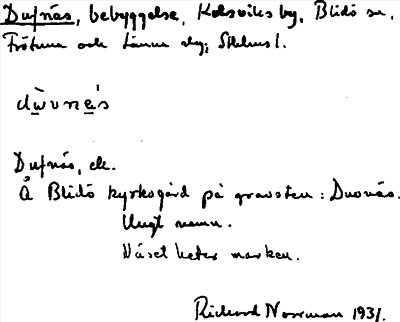 Dufnäs, bebyggelse, Kolsviks by, Blidö sn,
Frötuna och Länna slg, Sthlms l.
dùvnę́s
Dufnäs, ek.
Å Blidö kyrkogård på gravsten: Duvnäs.
Ungt namn.
Näset heter marken.
Richard Norrman 1931.